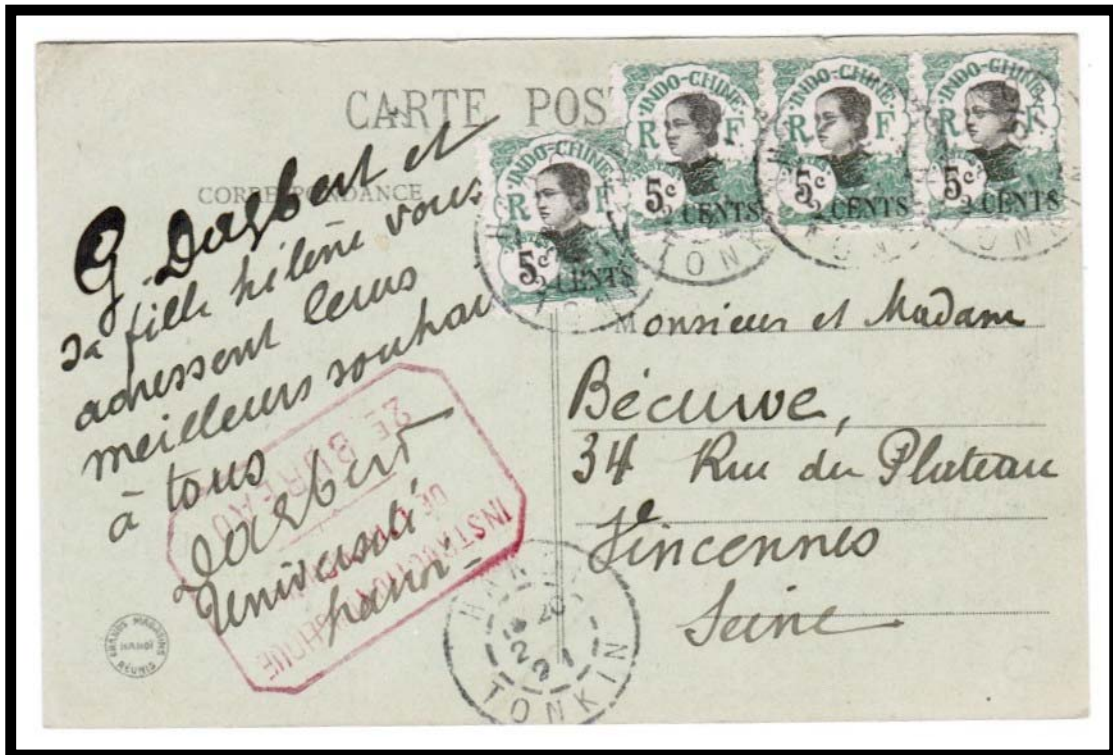 CARTE POS
CORRESPONDANCE
G. Dagbert et
sa fille hélène vous
adressent leurs
meilleurs souhai
à tous
Dagbert
Université
hanoi
INSTRUCTION PUBLIQUE
2E BUREAU
GRANDS MAGASINS
HANOI
RÉUNIS
INDO-CHINE
R F
5c
2 CENTS
INDO-CHINE
R F
5c
2 CENTS
INDO-CHINE
R F
5c
2 CENTS
INDO-CHINE
R F
5c
2 CENTS
TONKIN
Monsieur et Madame
Bécuwe,
34 Rue du Plateau
Vincennes
Seine
HANOI
TONKIN